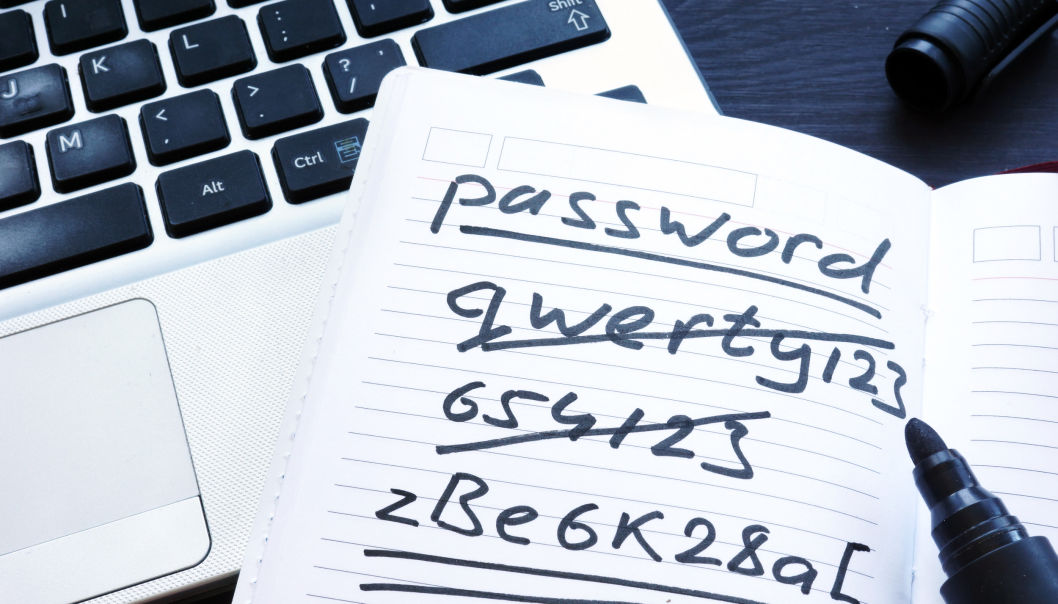 Shift
L
: ;
K
? /
J
> .
< ,
M
Ctrl
Alt
password
qwerty123
654123
zBe6K28a[